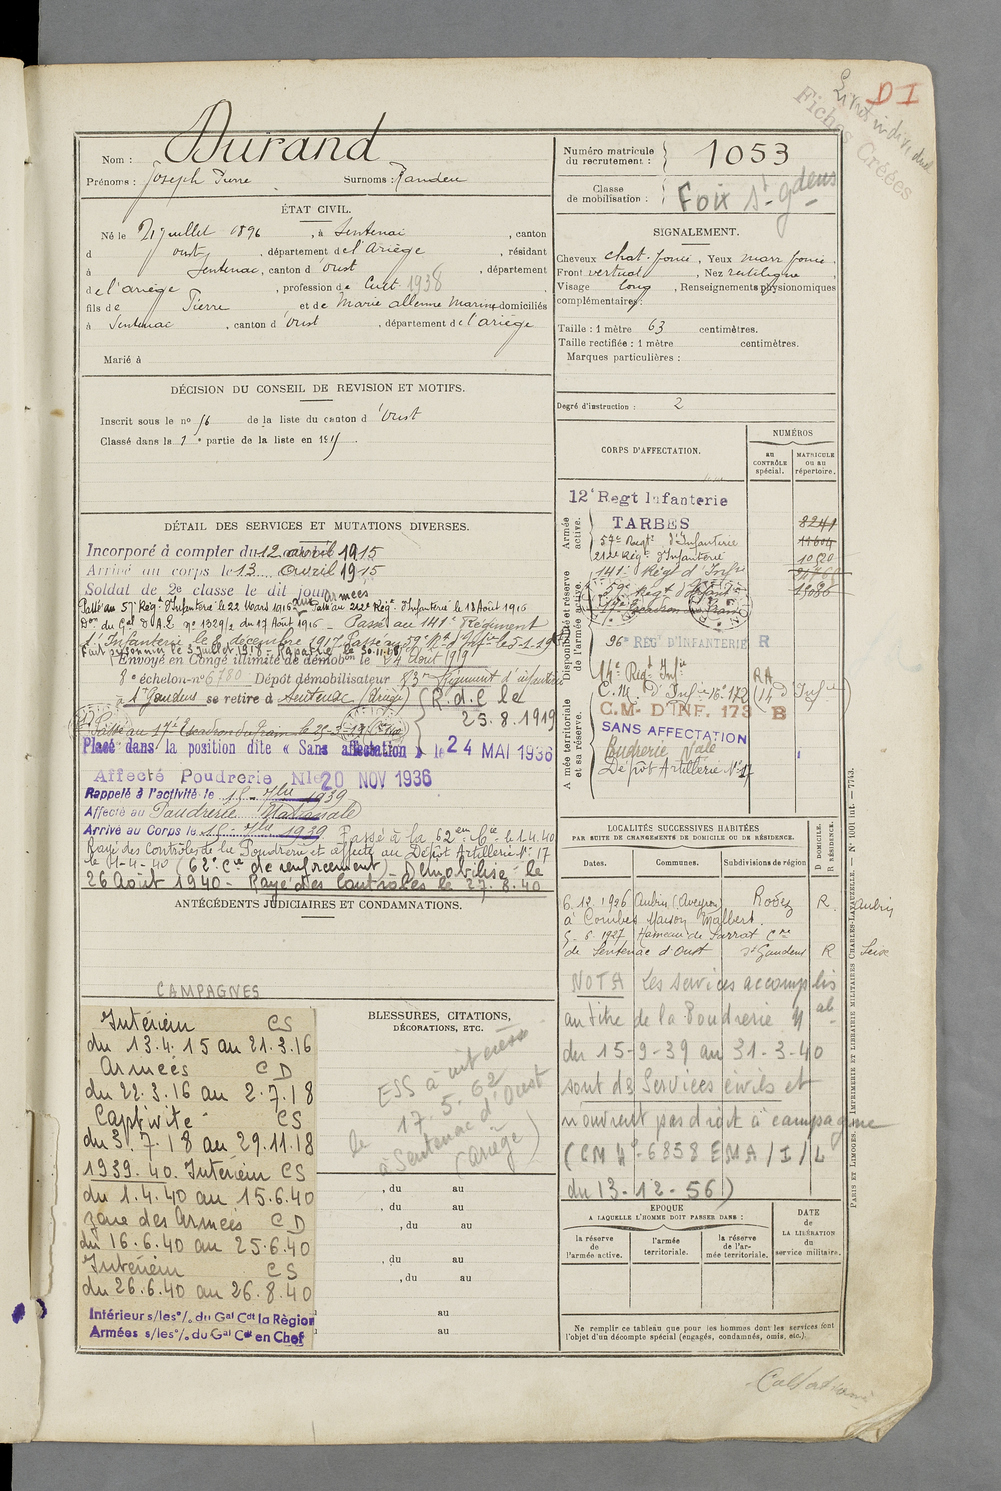 D I
Fiches Créées
Nom : Durand
Prénoms : Joseph Pierre Surnoms :
Numéro matricule du recrutement : 1053
Classe de mobilisation :
Foix St-Gdens
ÉTAT CIVIL.
Né le juillet 1896, à Sentenac, canton
d'Oust, département de l'Ariège, résidant
à Sentenac, canton d'Oust, département
de l'ariège, profession de Cult 1938
fils de Pierre et de Marie domiciliés
à Sentenac, canton d'Oust, département de l'ariège
Marié à
SIGNALEMENT.
Cheveux chat. foncé, Yeux marr foncé.
Front vertical, Nez rectiligne,
Visage long, Renseignements physionomiques
complémentaires:
Taille : 1 mètre 63 centimètres.
Taille rectifiée : 1 mètre centimètres.
Marques particulières :
Degré d'instruction : 2
DÉCISION DU CONSEIL DE REVISION ET MOTIFS.
Inscrit sous le no 56 de la liste du canton d'Oust
Classé dans la 1e partie de la liste en 1915.
DÉTAIL DES SERVICES ET MUTATIONS DIVERSES.
Incorporé à compter du 12 avril 1915
Arrivé au corps le 13 avril 1915
Soldat de 2e classe le dit jour
aux armées
Passé au 57e Régt d'Infanterie le 22 Mars 1916. Passé au 212e Régt d'Infanterie le 18 Août 1916
Don du Gal D.A.E no 1329/2 du 17 Août 1916 - Passé au 141e Régiment
d'Infanterie le 8 décembre 1917 Passé au
Fait prisonnier le 3 juillet 1918 - Rapatrié le 30.11.18
Envoyé en Congé illimité de démobon le 24 Août 1919
8e échelon-no 6780 Dépôt démobilisateur 83e Régiment d'infanterie
à St Gaudens se retire à Sentenac (Ariège) (R.d.C le
25.8.1919
Passé au 17e Escadron du train le
Placé dans la position dite « Sans affectation » le 24 MAI 1936
Affecté Poudrerie Nle 20 NOV 1936
Rappelé à l'activité le 15 7bre 1939
Affecté au Poudrerie Nationale
Arrivé au Corps le 15 7bre 1939 Passé à la 62eme Cie le 1.4.40
Rayé des Contrôles de la Poudrerie et affecté au Dépôt Artillerie No 17
le 1-4-40 (62e Cie de renforcement) - Démobilisé le
26 Août 1940 - Rayé des Contrôles le 27.8.40
ANTÉCÉDENTS JUDICIAIRES ET CONDAMNATIONS.
CORPS D'AFFECTATION.
NUMÉROS
au CONTRÔLE spécial.
MATRICULE ou au répertoire.
Armée active.
Disponibilité et réserve de l'armée active.
Armée territoriale et sa réserve.
12e Regt Infanterie
TARBES
8241
57e Regt d'Infanterie
11604
212e Rég. d'Infanterie
1020
141e Régt d'Infie
96e RÉGt D'INFANTERIE R
14e Régt Infie RA
C.M. D'Infie No 172 (14e D'Infie)
C.M. D'INF. 173 B
SANS AFFECTATION
Poudrerie Nale
Dépôt Artillerie No 17
LOCALITÉS SUCCESSIVES HABITÉES
PAR SUITE DE CHANGEMENTS DE DOMICILE OU DE RÉSIDENCE.
Dates. Communes. Subdivisions de région
D DOMICILE.
R RÉSIDENCE.
6.12.1926 Aubin (Aveyron) Rodez R. Aubin
à Combes Maison Malbert.
5.6.1927 Hameau de Sarrat Cne
de Sentenac d'Oust St Gaudens R Seix
NOTA Les services accomplis
au titre de la Poudrerie Nale
du 15-9-39 au 31-3-40
sont des Services civils et
n'ouvrent pas droit à campagne
(CM No 6858 EMA/I/L
du 13-12-56)
CAMPAGNES
Intérieur CS
du 13.4.15 au 21.3.16
Armées CD
du 22.3.16 au 2.7.18
Captivité CS
du 3.7.18 au 29.11.18
1939.40. Intérieur CS
du 1.4.40 au 15.6.40
Zone des Armées CD
du 16.6.40 au 25.6.40
Intérieur CS
du 26.6.40 au 26.8.40
Intérieur s/les o/. du Gal Cdt la Région
Armées s/les o/. du Gal Cdt en Chef
BLESSURES, CITATIONS,
DÉCORATIONS, ETC.
le 17.5.62
à Sentenac d'Oust
(Ariège)
, du au
, du au
, du au
, du au
, du au
au
au
EPOQUE
A LAQUELLE L'HOMME DOIT PASSER DANS :
la réserve de l'armée active.
l'armée territoriale.
la réserve de l'armée territoriale.
DATE de LA LIBÉRATION du service militaire.
Ne remplir ce tableau que pour les hommes dont les services font
l'objet d'un décompte spécial (engagés, condamnés, omis, etc.).
PARIS ET LIMOGES. IMPRIMERIE ET LIBRAIRIE MILITAIRES CHARLES-LAVAUZELLE. — No 1001 int. — 7743.